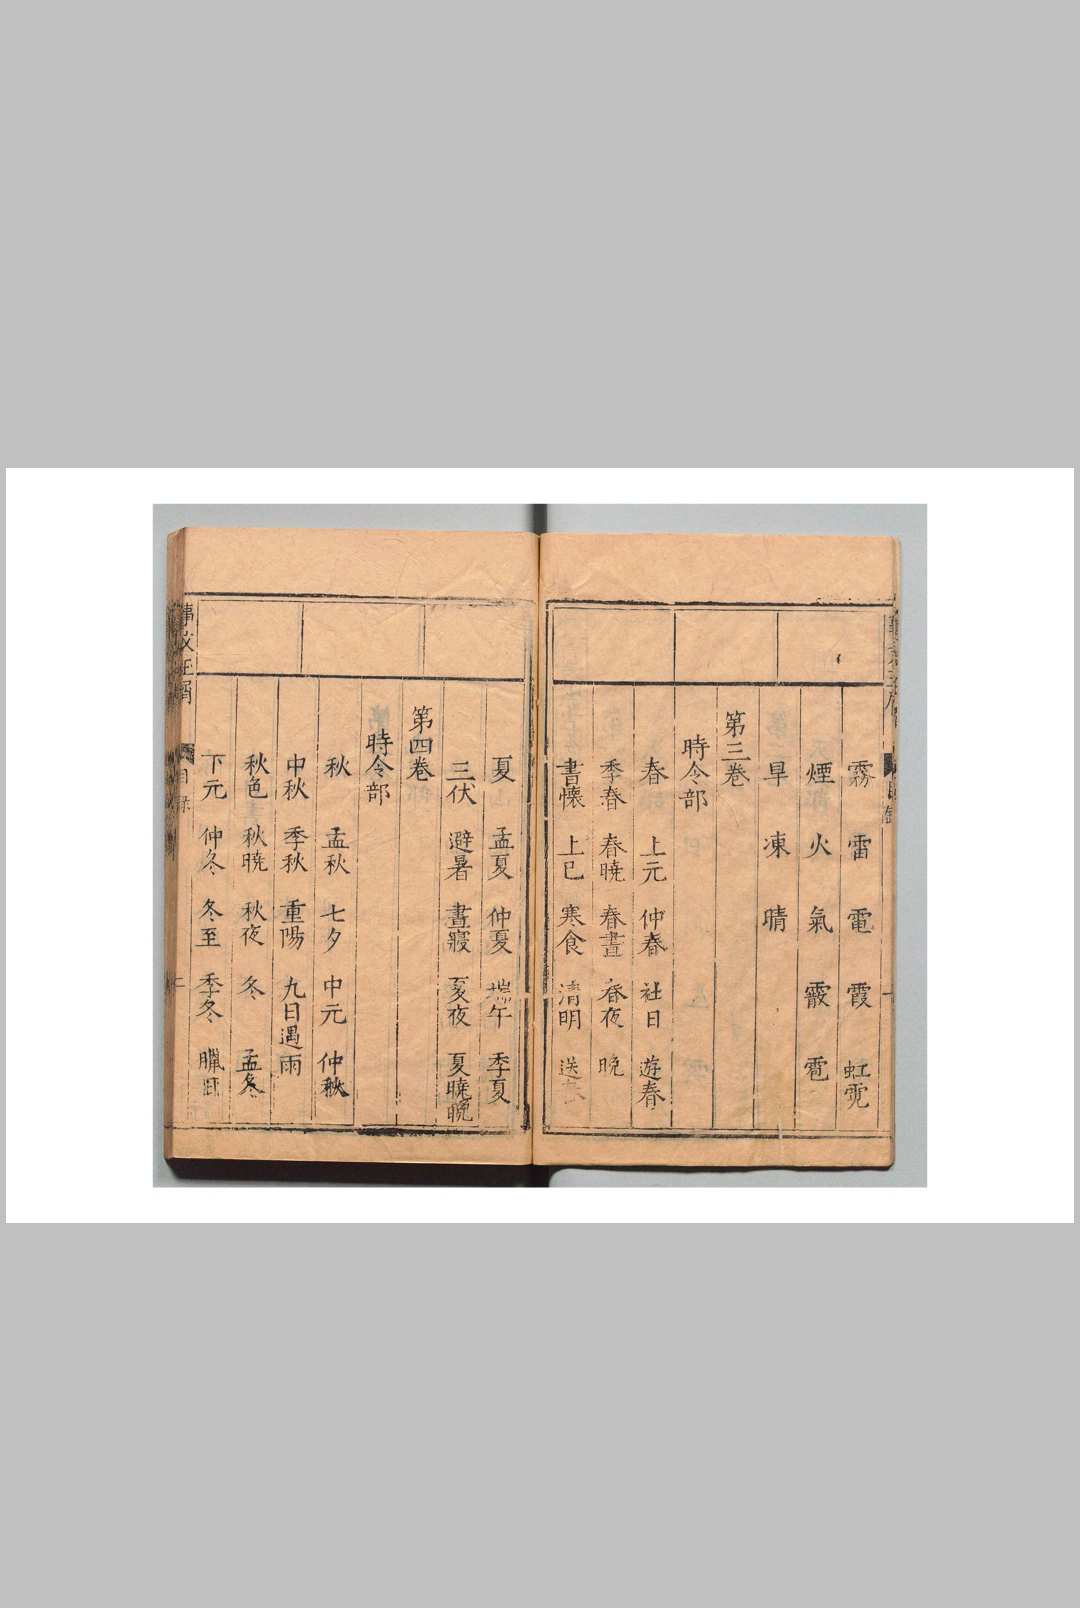 霧 雷 電 霞 虹霓
煙 火 氣 霰 雹
旱 凍 晴
第三巻
時令部
春 上元 仲春 社日 遊春
季春 春曉 春晝 春夜 晩
書懷 上巳 寒食 清明 送
夏 孟夏 仲夏 端午 季夏
三伏 避暑 晝寢 夏夜 夏曉晩
第四巻
時令部
秋 孟秋 七夕 中元 仲秋
中秋 季秋 重陽 九日遇雨
秋色 秋曉 秋夜 冬 孟冬
下元 仲冬 冬至 季冬 臘日
事文玉屑
目录
二